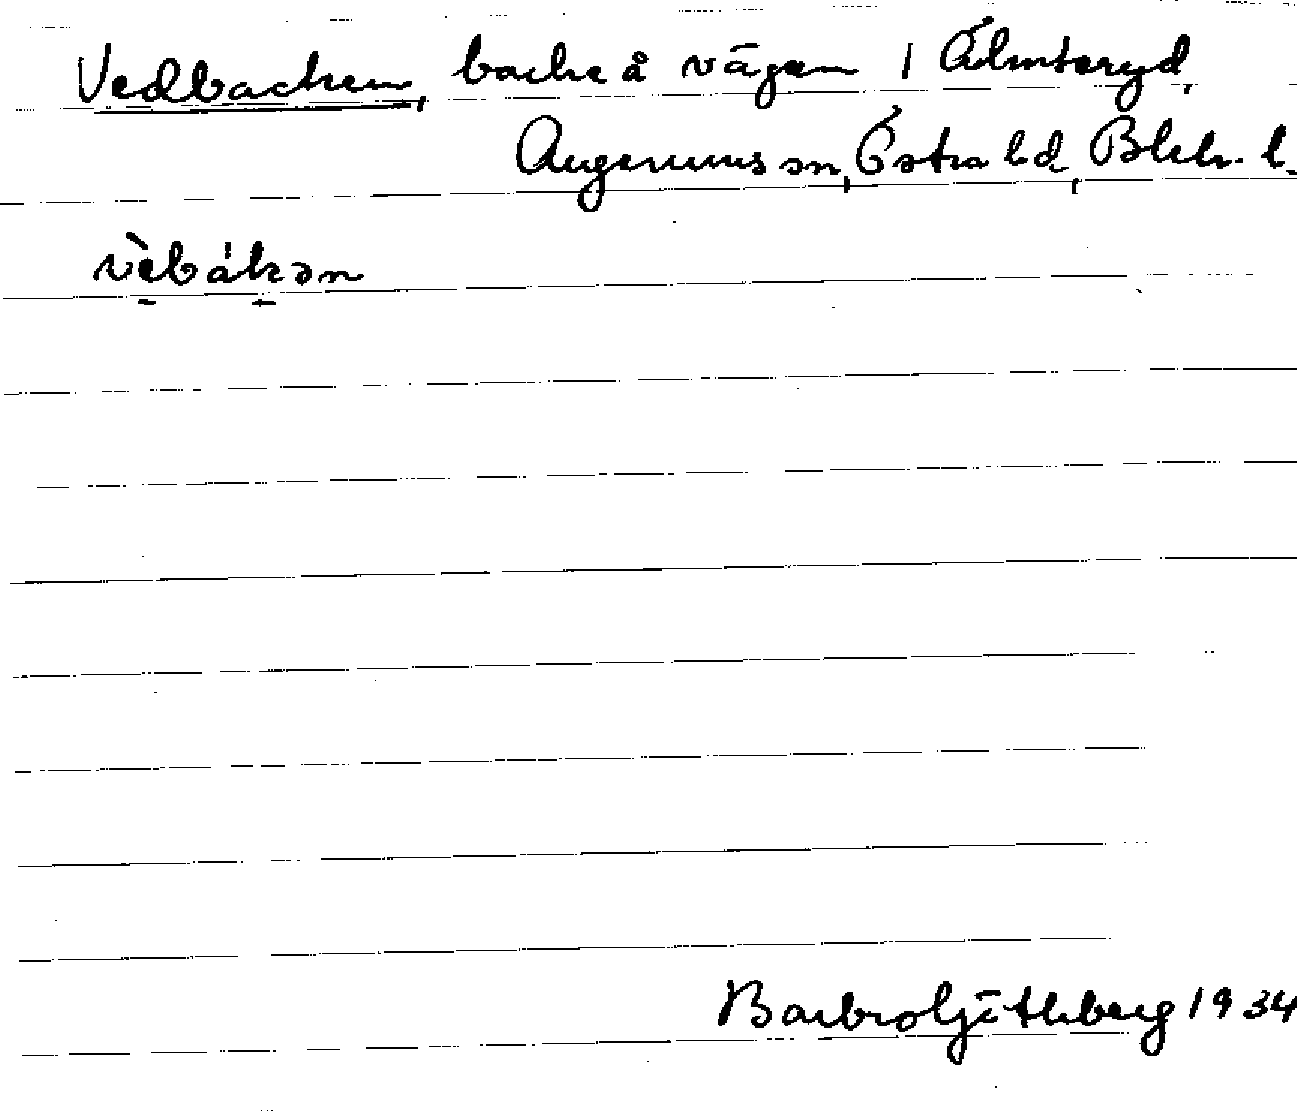 Vedbacken, backe å vägen i Älmteryd,
Augerums sn, Östra hd, Blek. l.
vèbákən
Barbro Götlberg 1934